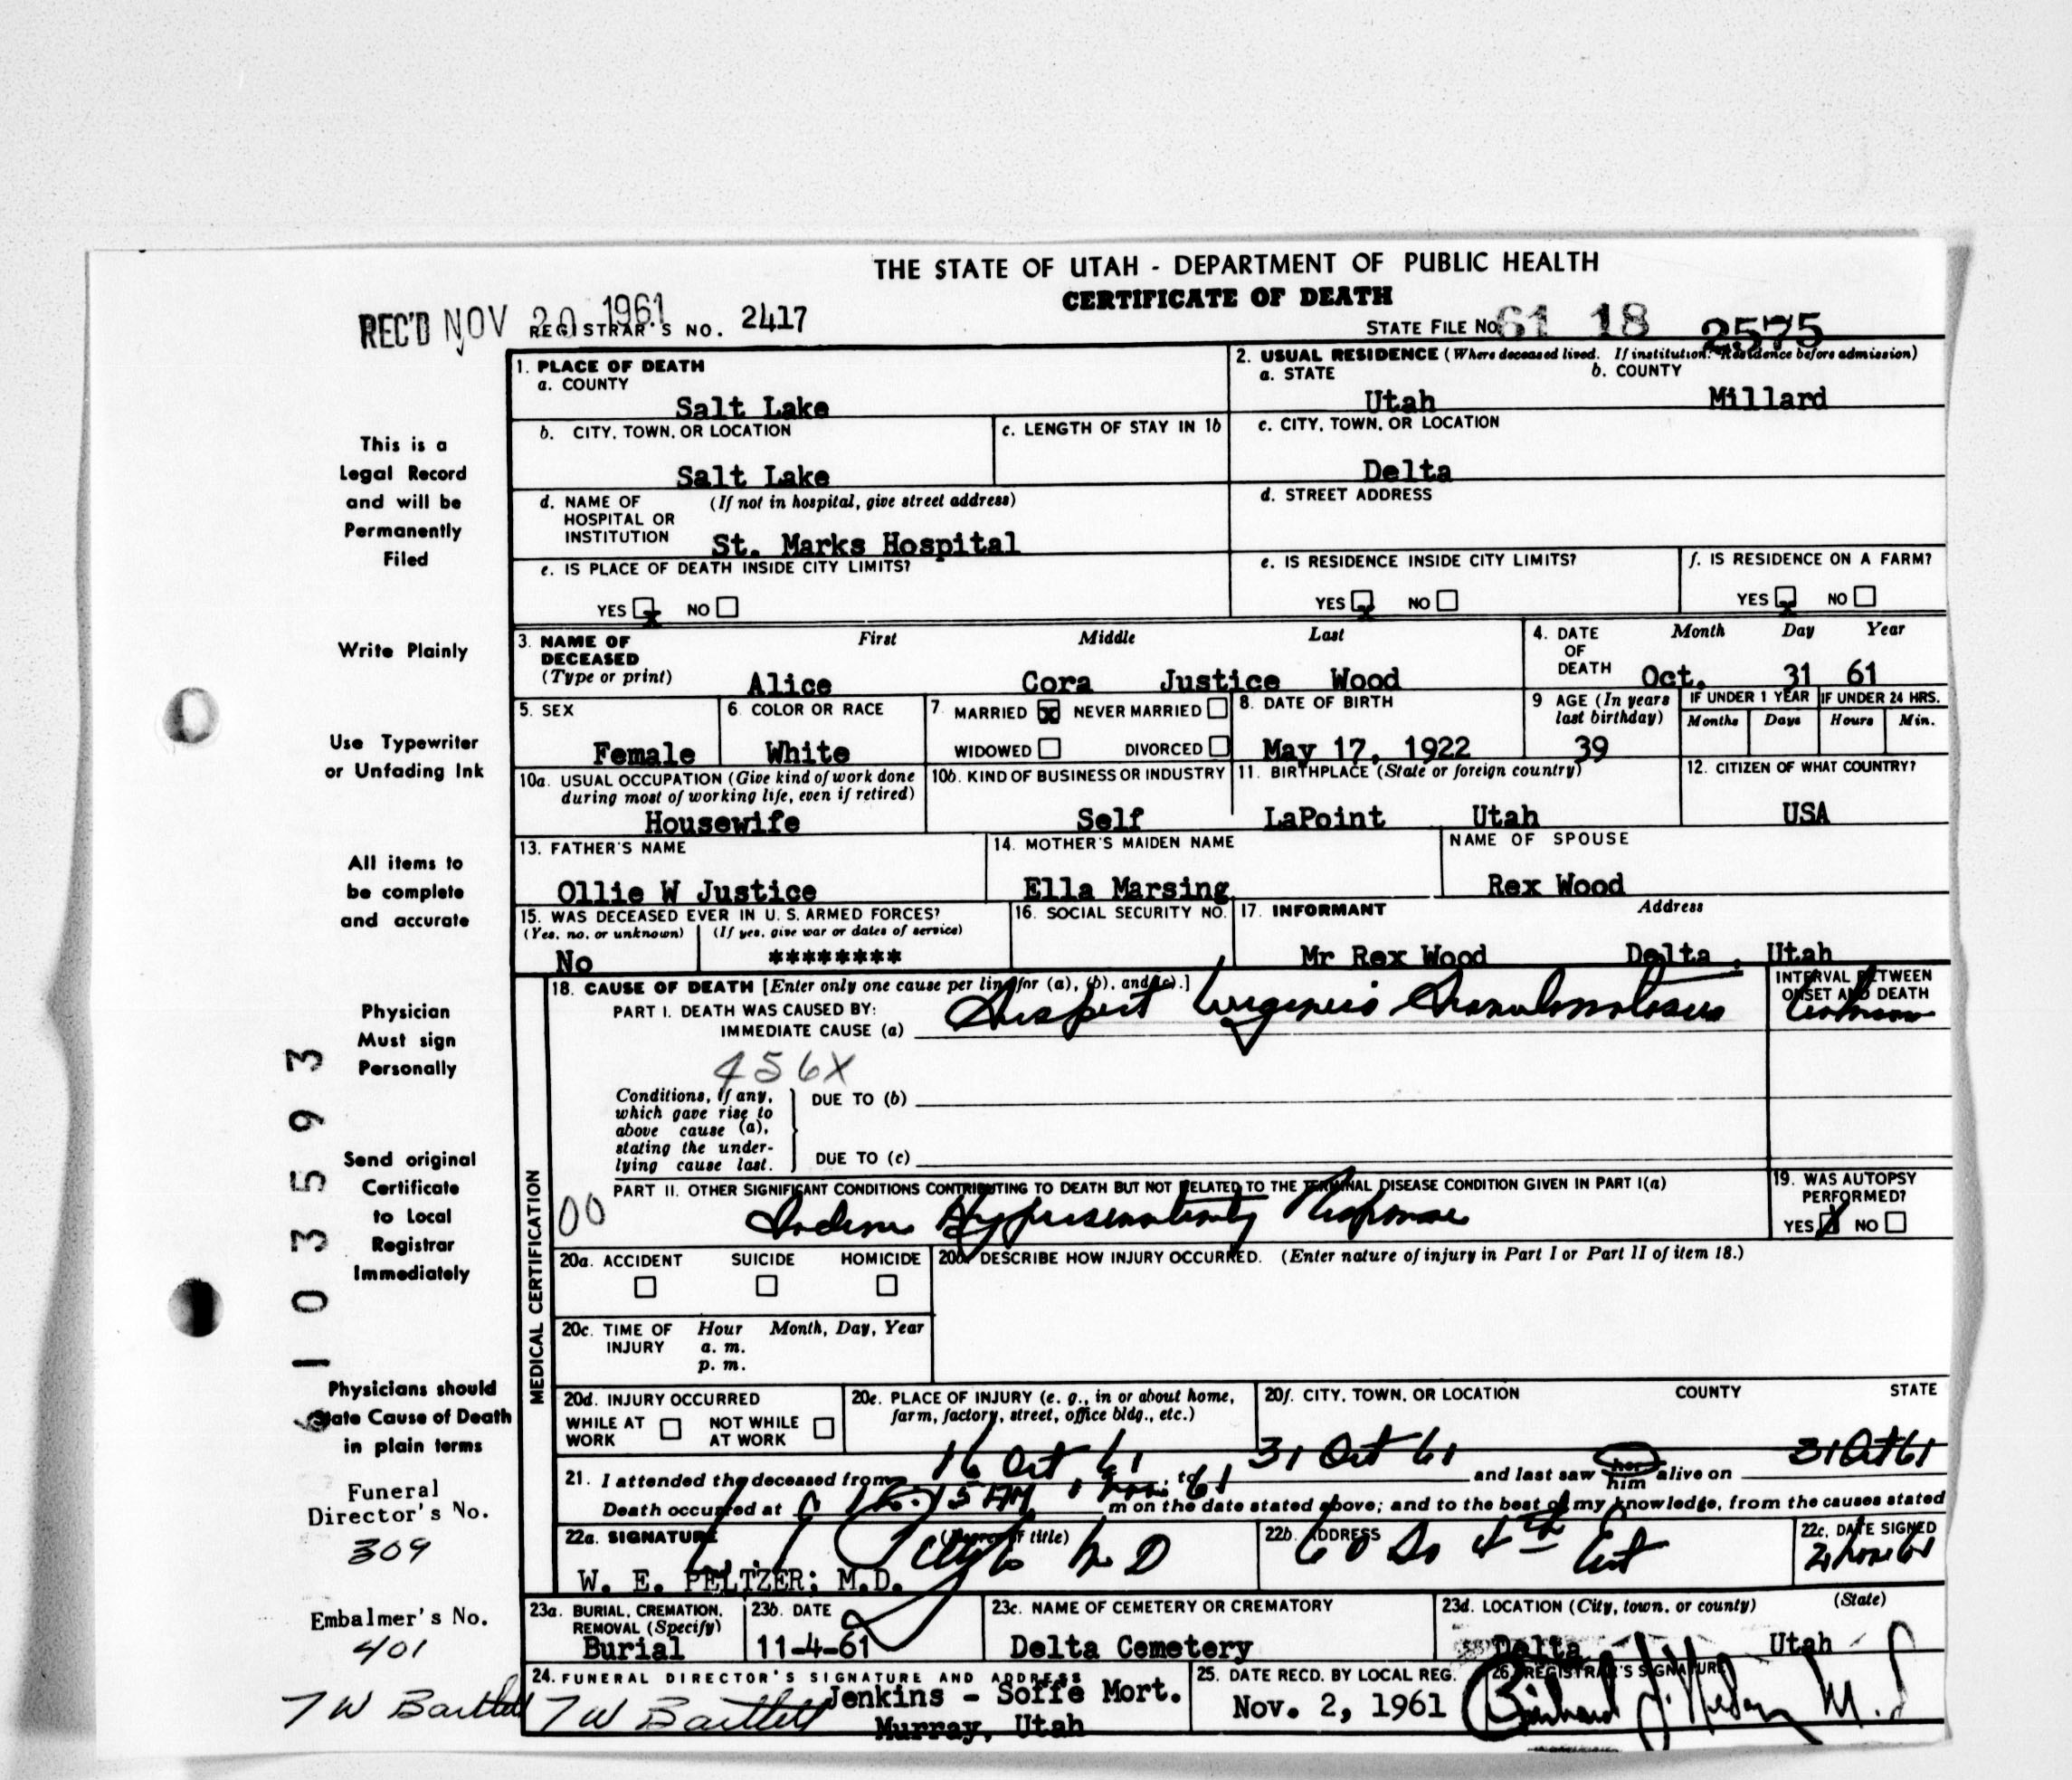 THE STATE OF UTAH - DEPARTMENT OF PUBLIC HEALTH
CERTIFICATE OF DEATH
REC'D NOV 20 1961 REGISTRAR'S NO. 2417
STATE FILE No. 61 18 2575
1. PLACE OF DEATH
a. COUNTY
Salt Lake
2. USUAL RESIDENCE (Where deceased lived. If institution: Residence before admission)
a. STATE b. COUNTY
Utah Millard
b. CITY, TOWN, OR LOCATION
Salt Lake
c. LENGTH OF STAY IN 1b
c. CITY, TOWN, OR LOCATION
Delta
d. NAME OF (If not in hospital, give street address)
HOSPITAL OR
INSTITUTION St. Marks Hospital
d. STREET ADDRESS
e. IS PLACE OF DEATH INSIDE CITY LIMITS?
YES x NO
e. IS RESIDENCE INSIDE CITY LIMITS?
YES x NO
f. IS RESIDENCE ON A FARM?
YES x NO
3. NAME OF First Middle Last
DECEASED
(Type or print) Alice Cora Justice Wood
4. DATE Month Day Year
OF
DEATH Oct. 31 61
5. SEX
Female
6. COLOR OR RACE
White
7. MARRIED x NEVER MARRIED
WIDOWED DIVORCED
8. DATE OF BIRTH
May 17, 1922
9 AGE (In years
last birthday)
39
IF UNDER 1 YEAR IF UNDER 24 HRS.
Months Days Hours Min.
10a. USUAL OCCUPATION (Give kind of work done
during most of working life, even if retired)
Housewife
10b. KIND OF BUSINESS OR INDUSTRY
Self
11. BIRTHPLACE (State or foreign country)
LaPoint Utah
12. CITIZEN OF WHAT COUNTRY?
USA
13. FATHER'S NAME
Ollie W Justice
14. MOTHER'S MAIDEN NAME
Ella Marsing
NAME OF SPOUSE
Rex Wood
15. WAS DECEASED EVER IN U. S. ARMED FORCES?
(Yes, no, or unknown) (If yes, give war or dates of service)
No ********
16. SOCIAL SECURITY NO.
17. INFORMANT Address
Mr Rex Wood Delta, Utah
MEDICAL CERTIFICATION
18. CAUSE OF DEATH [Enter only one cause per line for (a), (b), and (c).]
PART I. DEATH WAS CAUSED BY:
IMMEDIATE CAUSE (a)
INTERVAL BETWEEN
ONSET AND DEATH
Unknown
456X
Conditions, if any,
which gave rise to
above cause (a),
stating the under-
lying cause last.
DUE TO (b)
DUE TO (c)
PART II. OTHER SIGNIFICANT CONDITIONS CONTRIBUTING TO DEATH BUT NOT RELATED TO THE TERMINAL DISEASE CONDITION GIVEN IN PART I(a)
00 Iodine Hypersensitivity Response
19. WAS AUTOPSY
PERFORMED?
YES NO
20a. ACCIDENT SUICIDE HOMICIDE
20b. DESCRIBE HOW INJURY OCCURRED. (Enter nature of injury in Part I or Part II of item 18.)
20c. TIME OF Hour Month, Day, Year
INJURY a. m.
p. m.
20d. INJURY OCCURRED
WHILE AT NOT WHILE
WORK AT WORK
20e. PLACE OF INJURY (e. g., in or about home,
farm, factory, street, office bldg., etc.)
20f. CITY, TOWN, OR LOCATION COUNTY STATE
21. I attended the deceased from 16 Oct 61, to 31 Oct 61 and last saw her him alive on 31 Oct 61
Death occured at m on the date stated above; and to the best of my knowledge, from the causes stated
22a. SIGNATURE (Degree or title)
M D
W. E. PELTZER; M.D.
22b. ADDRESS
60 So 4th East
22c. DATE SIGNED
2 Nov 61
23a. BURIAL, CREMATION,
REMOVAL (Specify)
Burial
23b. DATE
11-4-61
23c. NAME OF CEMETERY OR CREMATORY
Delta Cemetery
23d. LOCATION (City, town, or county) (State)
Delta Utah
24. FUNERAL DIRECTOR'S SIGNATURE AND ADDRESS
T W Bartlett Jenkins - Soffe Mort.
Murray, Utah
25. DATE RECD. BY LOCAL REG.
Nov. 2, 1961
26. REGISTRAR'S SIGNATURE
This is a
Legal Record
and will be
Permanently
Filed
Write Plainly
Use Typewriter
or Unfading Ink
All items to
be complete
and accurate
Physician
Must sign
Personally
Send original
Certificate
to Local
Registrar
Immediately
Physicians should
State Cause of Death
in plain terms
Funeral
Director's No.
309
Embalmer's No.
401
T W Bartlett
6103593